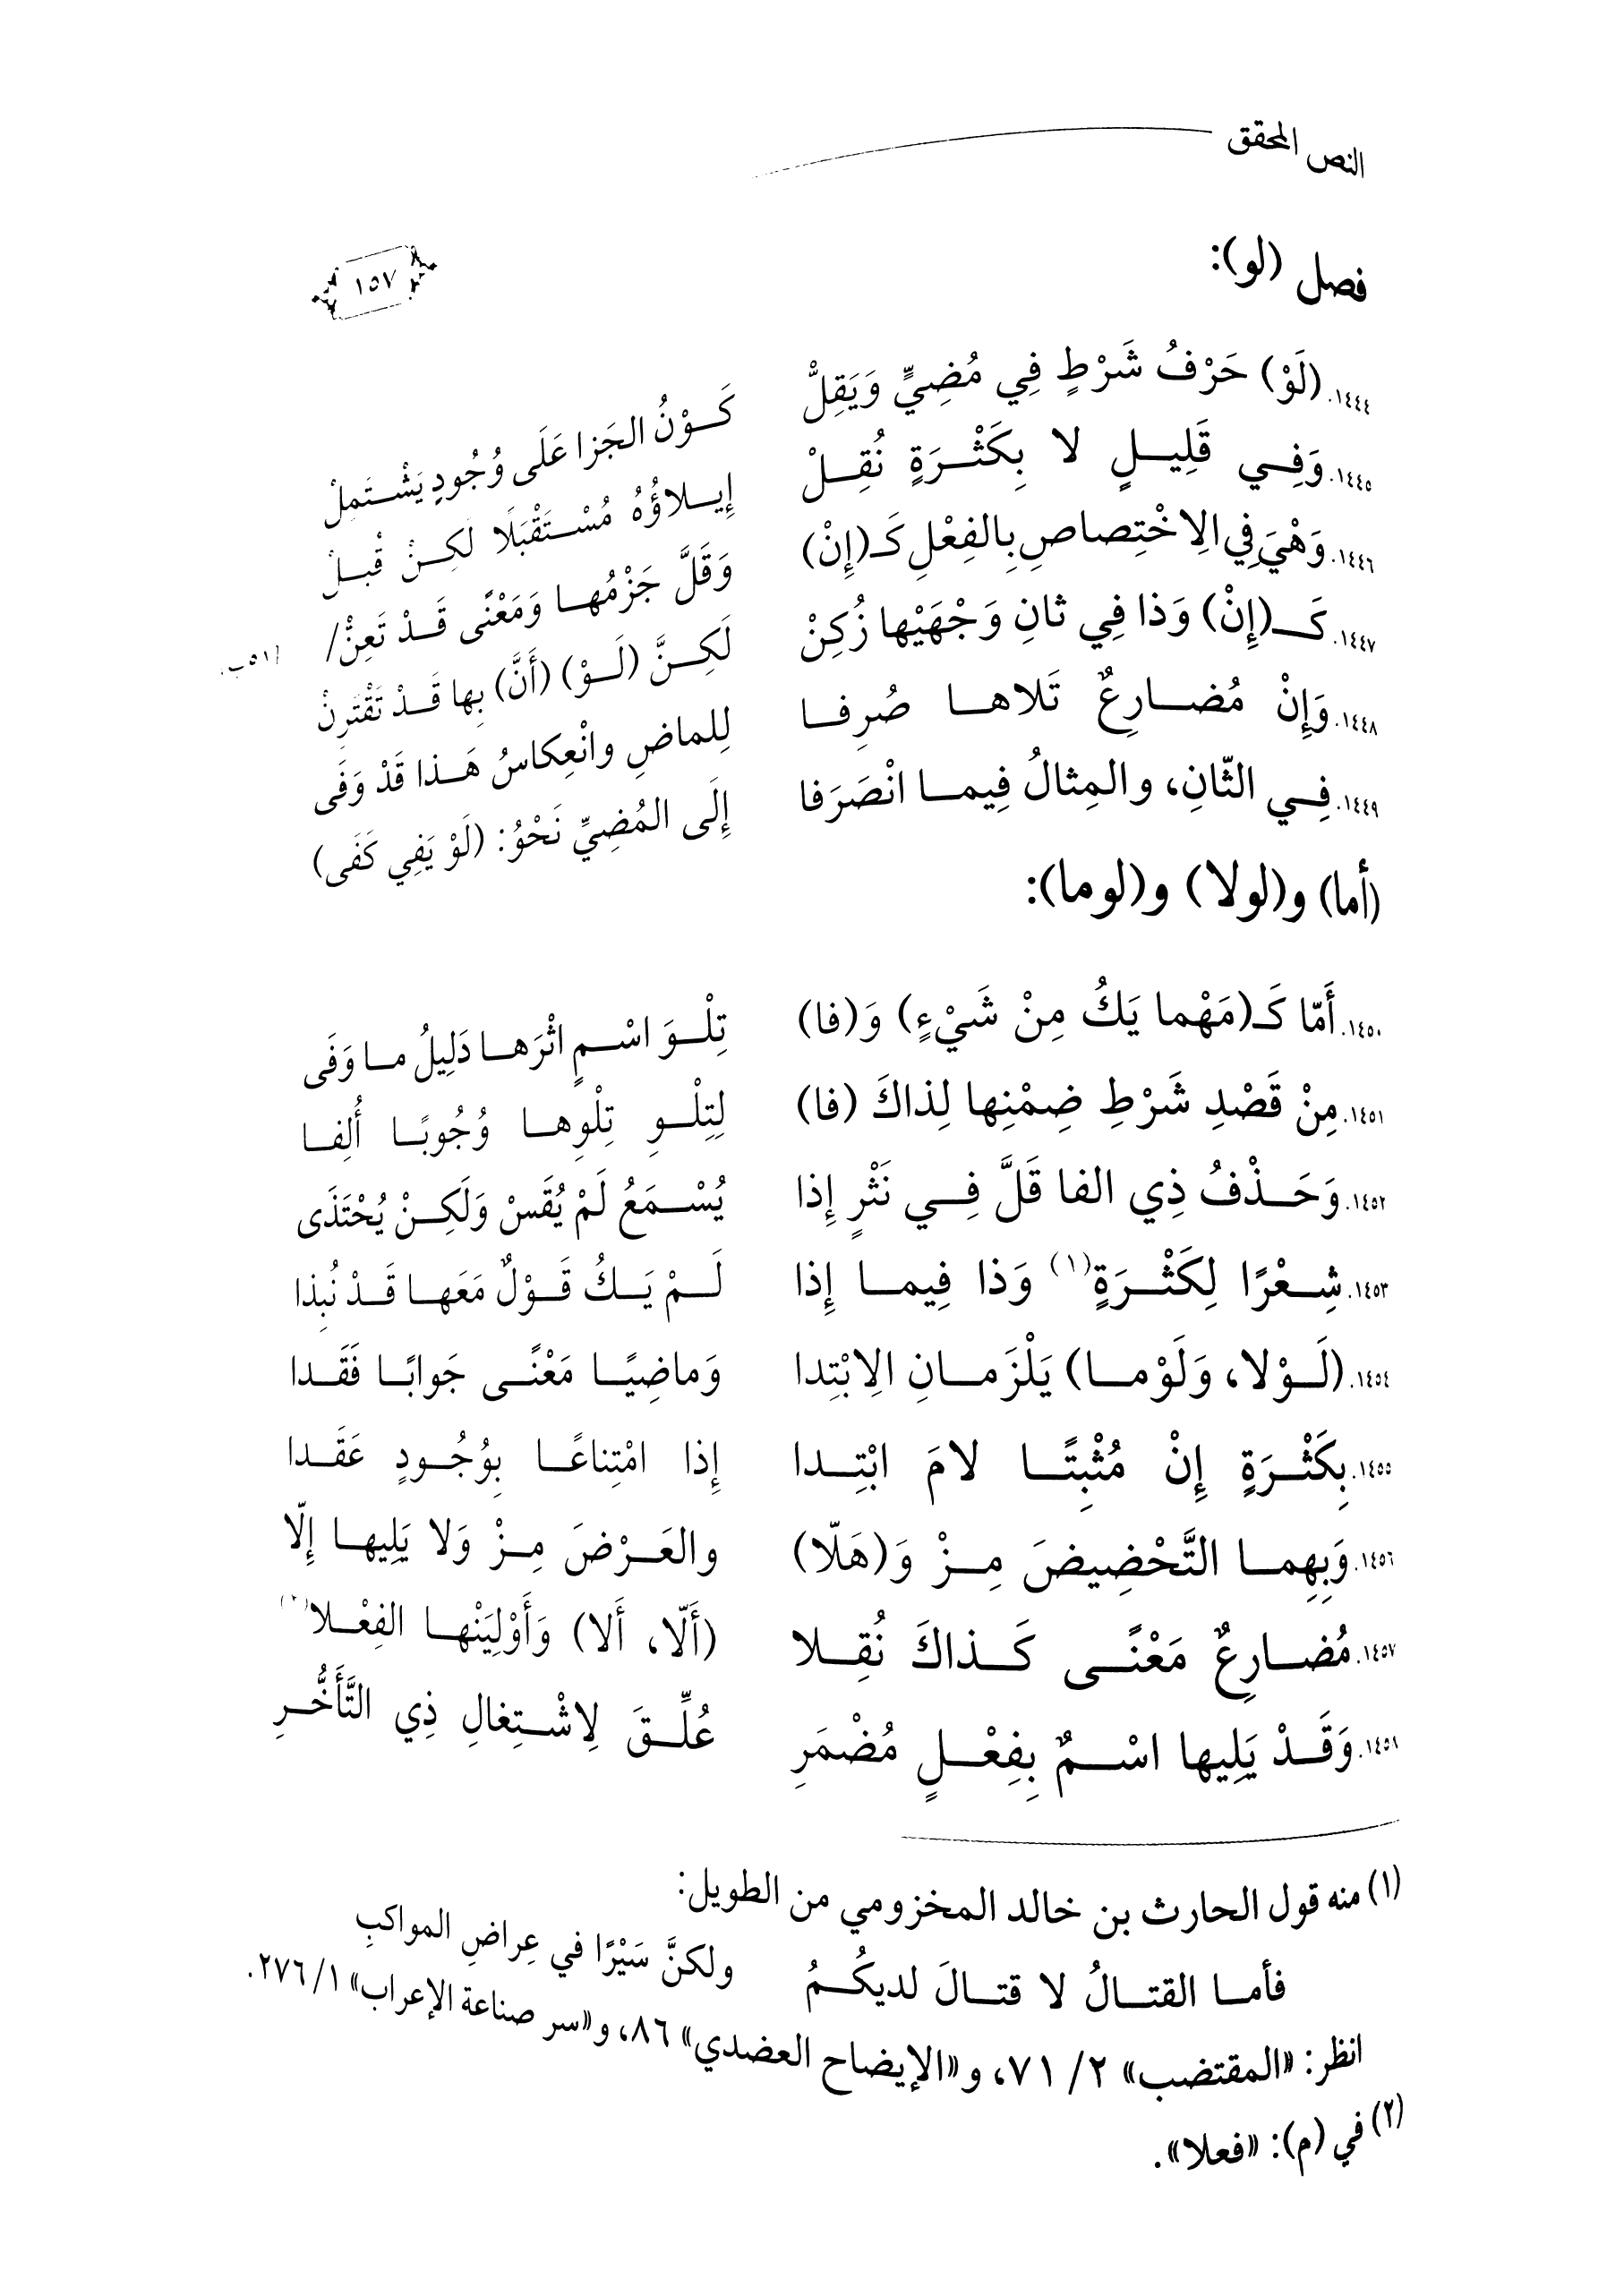 النص المحقق
١٥٧
فصل (لو):
١٤٤٤. (لَوْ) حَرْفُ شَرْطٍ فِي مُضِيٍّ وَيَقِلّْ كَـوْنُ الجَزا عَلَى وُجُودٍ يَشْـتَمِلْ
١٤٤٥. وَفِـي قَلِيـلٍ لا بِكَثْـرَةٍ نُقِـلْ إِيـلاؤُهُ مُسْـتَقْبَلًا لَكِـنْ قُبـلْ
١٤٤٦. وَهْيَ فِي الِاخْتِصاصِ بِالفِعْلِ كَـ(إِنْ) وَقَلَّ جَزْمُهـا وَمَعْنًى قَـدْ تَعِنّْ/
/٥١ب.
١٤٤٧. كَـ(إِنْ) وَذا فِي ثانِ وَجْهَيْها زُكِنْ لَكِـنَّ (لَـوْ) (أَنَّ) بِها قَـدْ تَقْتَرِنْ
١٤٤٨. وَإِنْ مُضـارِعٌ تَلاهـا صُرِفـا لِلماضِ وانْعِكاسُ هَـذا قَدْ وَفَى
١٤٤٩. فِـي الثّانِ، والمِثالُ فِيمـا انْصَرَفا إِلَى المُضِيِّ نَحْوُ: (لَوْ يَفِي كَفَى)
(أما) و(لولا) و(لوما):
١٤٥٠. أَمّا كَـ(مَهْما يَكُ مِنْ شَيْءٍ) وَ(فا) تِلْـوَ اسْـمٍ اثْرَهـا دَلِيلُ مـا وَفَى
١٤٥١. مِنْ قَصْدِ شَرْطِ ضِمْنِها لِذاكَ (فا) لِتِلْـوِ تِلْوِهـا وُجُوبًـا أُلِفـا
١٤٥٢. وَحَـذْفُ ذِي الفا قَلَّ فِـي نَثْرٍ إِذا يُسْـمَعُ لَمْ يُقَسْ وَلَكِـنْ يُحْتَذَى
١٤٥٣. شِـعْرًا لِكَثْـرَةٍ(١) وَذا فِيمـا إِذا لَـمْ يَـكُ قَـوْلٌ مَعَهـا قَـدْ نُبِذا
١٤٥٤. (لَـوْلا، وَلَوْمـا) يَلْزَمـانِ الِابْتِدا وَماضِيًـا مَعْنًـى جَوابًـا فَقَـدا
١٤٥٥. بِكَثْـرَةٍ إِنْ مُثْبِتًـا لامَ ابْتِـدا إِذا امْتِناعًـا بِوُجُـودٍ عَقَـدا
١٤٥٦. وَبِهِمـا التَّحْضِيضَ مِـزْ وَ(هَلّا) والعَـرْضَ مِـزْ وَلا يَلِيهـا إِلّا
١٤٥٧. مُضـارِعٌ مَعْنًـى كَـذاكَ نُقِـلا (أَلّا، أَلا) وَأَوْلِيَنْهـا الفِعْـلا(٢)
١٤٥٨. وَقَـدْ يَلِيها اسْـمٌ بِفِعْـلٍ مُضْمَرِ عُلِّـقَ لِاشْـتِغالِ ذِي التَّأَخُّـرِ
(١) منه قول الحارث بن خالد المخزومي من الطويل:
فأمـا القتـالُ لا قتـالَ لديكُـمُ ولكنَّ سَيْرًا في عِراضِ المواكبِ
انظر: «المقتضب» ٢/ ٧١، و«الإيضاح العضدي» ٨٦، و«سر صناعة الإعراب» ١/ ٢٧٦.
(٢) في (م): «فعلا».